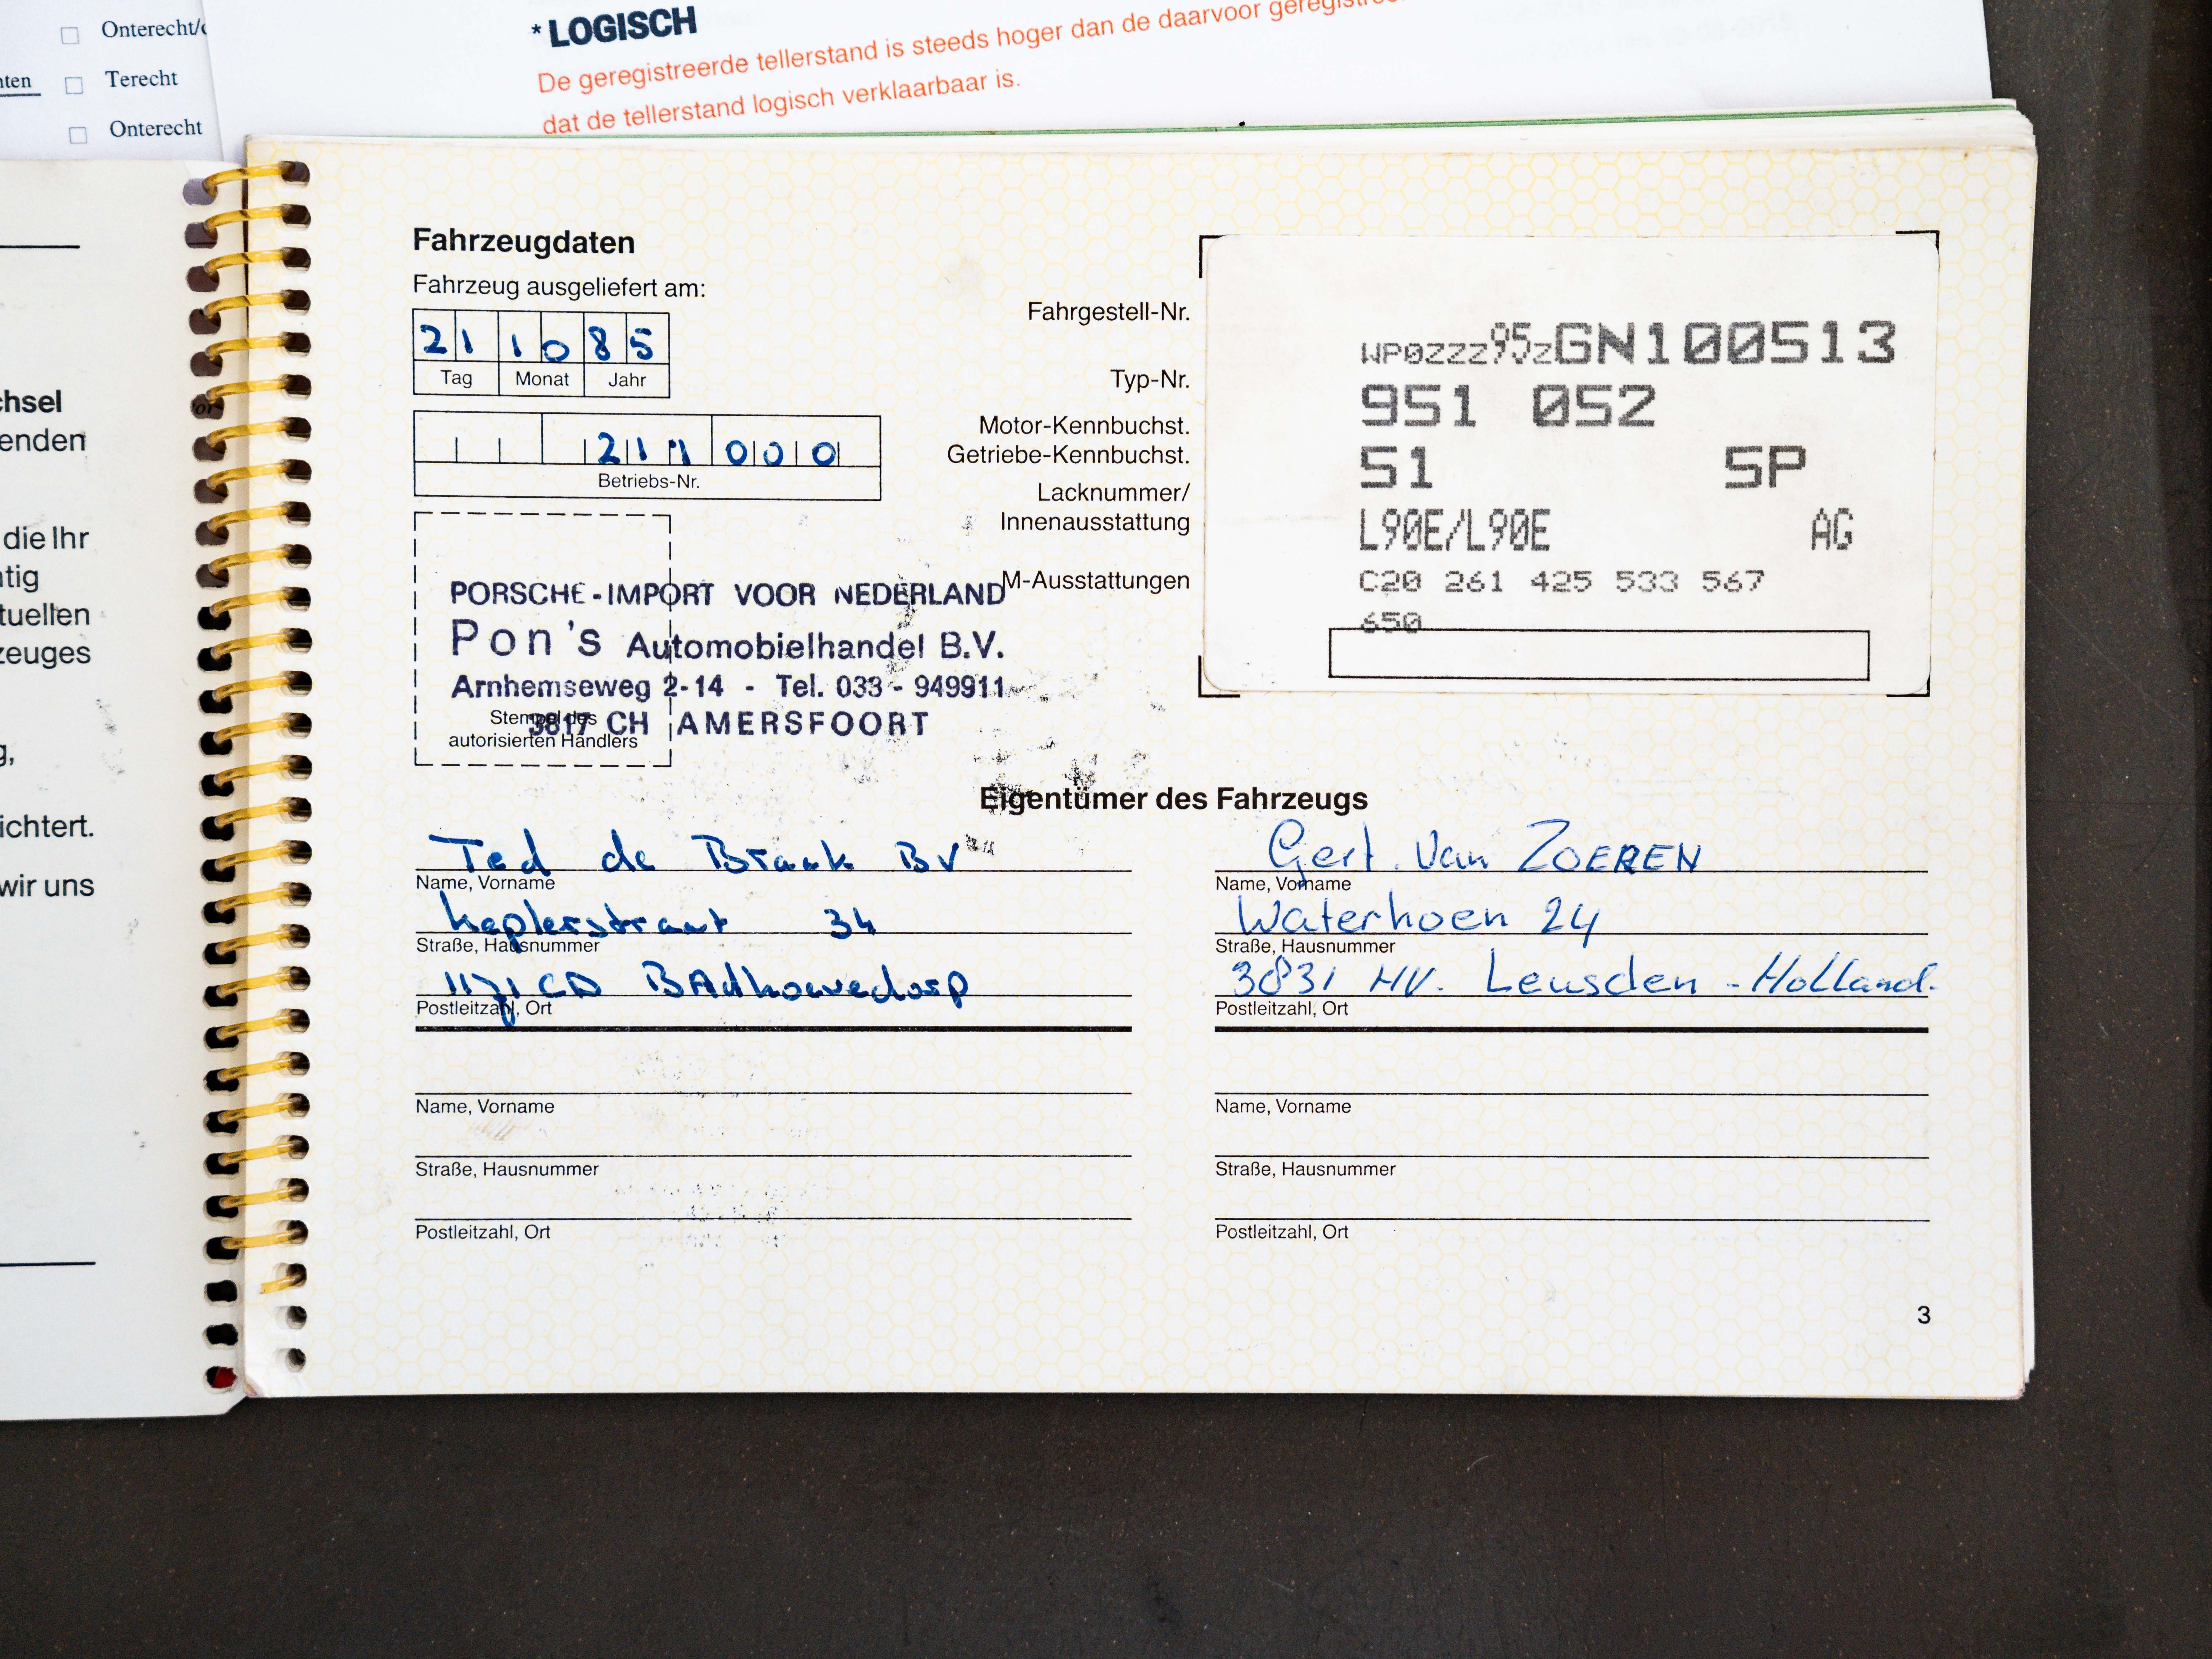 Onterecht/
Terecht
Onterecht
* LOGISCH
De geregistreerde tellerstand is steeds hoger dan de daarvoor
dat de tellerstand logisch verklaarbaar is.
enden
die Ihr
wir uns
Fahrzeugdaten
Fahrzeug ausgeliefert am:
21 10 85
Tag Monat Jahr
211 000
Betriebs-Nr.
PORSCHE-IMPORT VOOR NEDERLAND
Pon's Automobielhandel B.V.
Arnhemseweg 2-14 - Tel. 033 - 949911
3817 CH AMERSFOORT
Stempel des
autorisierten Händlers
Fahrgestell-Nr.
Typ-Nr.
Motor-Kennbuchst.
Getriebe-Kennbuchst.
Lacknummer/
Innenausstattung
M-Ausstattungen
WP0ZZZ95ZGN100513
951 052
51 5P
L90E/L90E AG
C20 261 425 533 567
650
Eigentümer des Fahrzeugs
Ted de Braak BV
Name, Vorname
Keplerstraat 34
Straße, Hausnummer
1171 CD BAdhoevedorp
Postleitzahl, Ort
Gert. Van ZOEREN
Name, Vorname
Waterhoen 24
Straße, Hausnummer
3831 HV. Leusden - Holland.
Postleitzahl, Ort
Name, Vorname
Straße, Hausnummer
Postleitzahl, Ort
Name, Vorname
Straße, Hausnummer
Postleitzahl, Ort
3